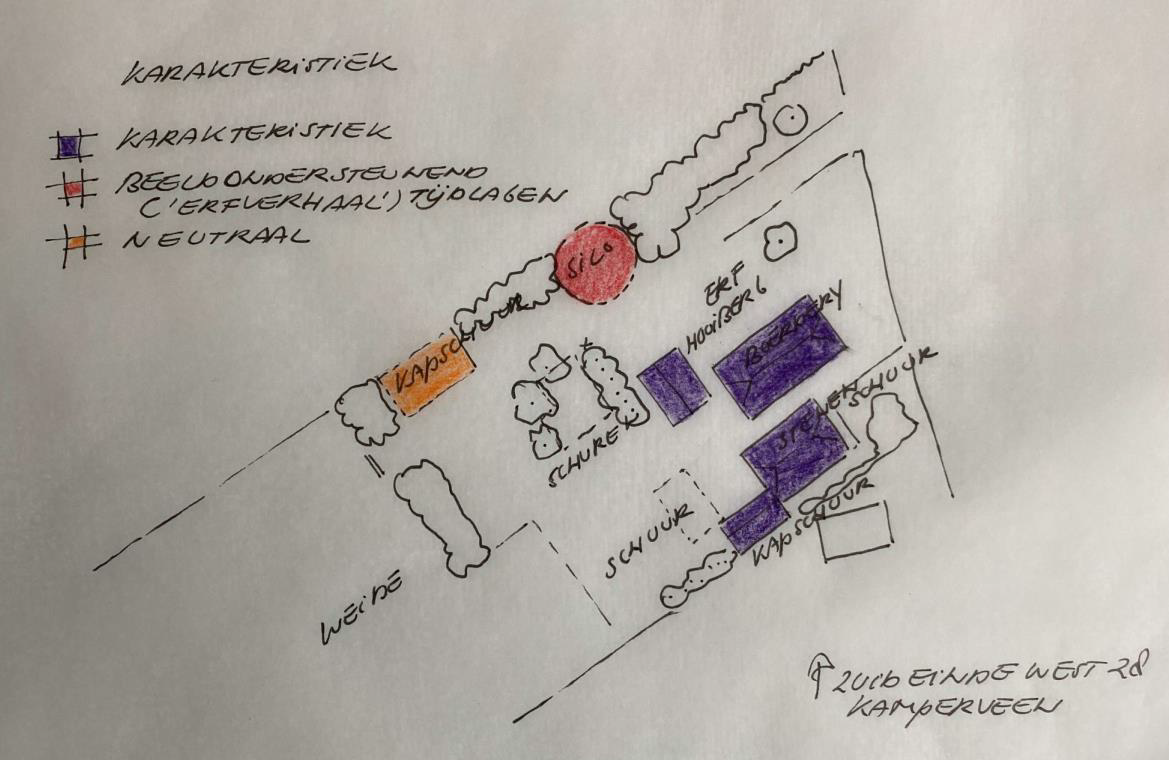 KARAKTERISTIEK
KARAKTERISTIEK
BEELDONDERSTEUNEND
('ERFVERHAAL') TIJDLAGEN
NEUTRAAL
SILO
KAPSCHUUR
ERF
HOOIBERG
BOERDERY
STENEN SCHUUR
SCHUREN
SCHUUR
KAPSCHUUR
WEIDE
↑ ZUIDEINDE WEST 28
KAMPERVEEN